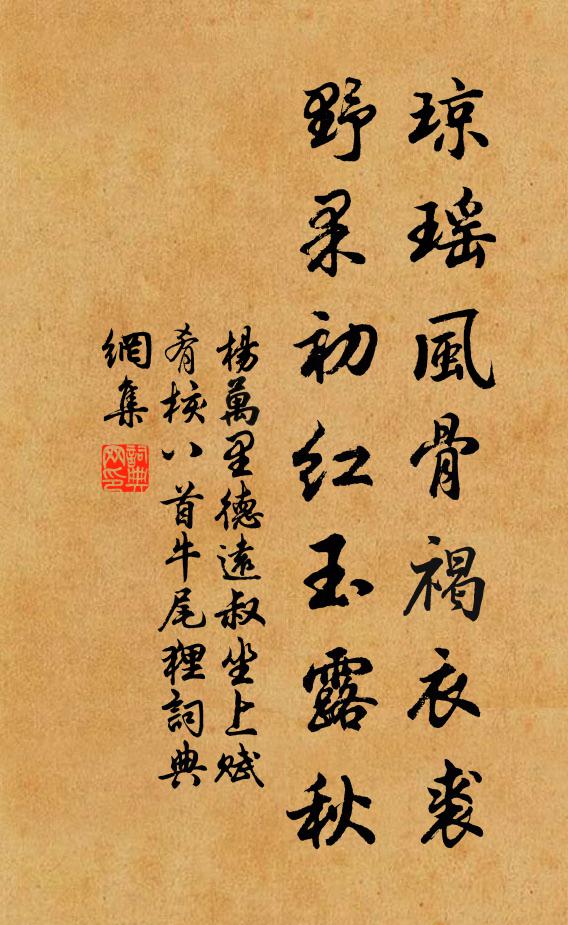 琼瑶風骨褐衣裘
野果初红玉露秋
楊萬里德遠叔坐上賦
肴核八首牛尾狸詞典
網集
詞典
网印